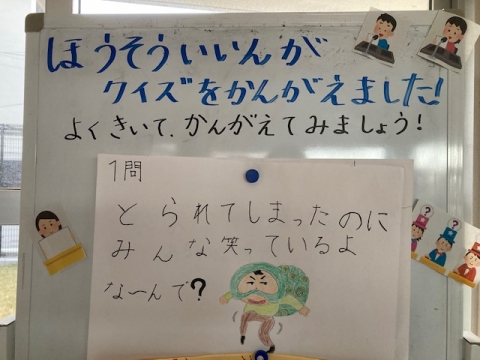 ほうそういいんが
クイズをかんがえました!
よくきいて、かんがえてみましょう!
1問
とられてしまったのに
みんな笑っているよ
な〜んで?